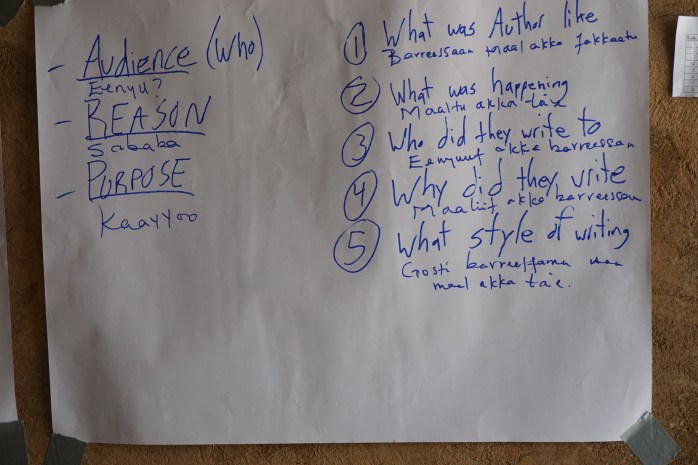 - Audience (Who)
Eenyu?
- REASON
Sababa
- PURPOSE
Kaayyoo
1 What was Author like
Barreessaan maal akka fakkaatu
2 What was happening
Maaltu akka ta'e
3 Who did they write to
Eenyuuf akka barreessan
4 Why did they write
Maaliif akka barreessan
5 What style of writing
Gosti barreeffama
maal akka ta'e.